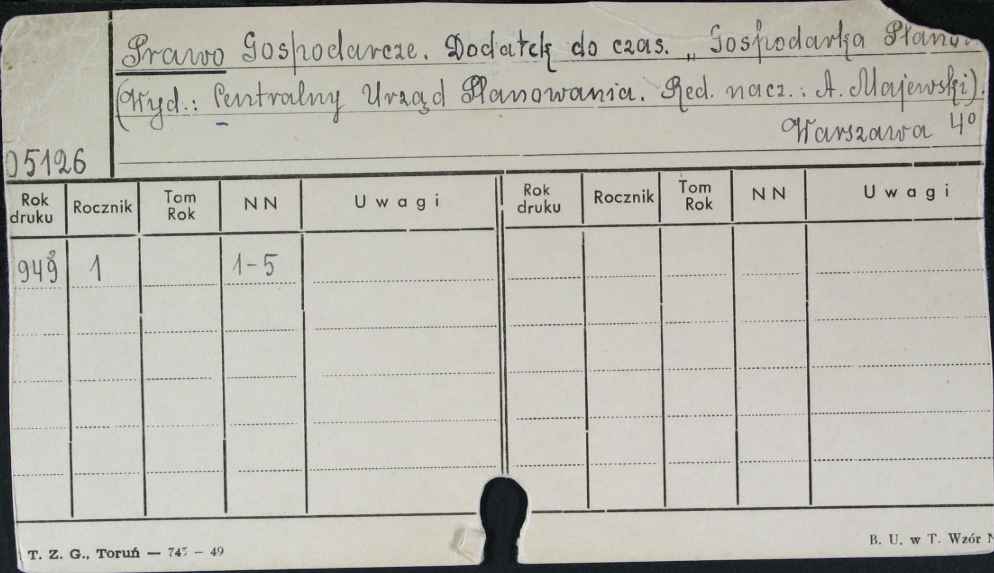 Prawo Gospodarcze. Dodatek do czas. „Gospodarka Planow
(Wyd.: Centralny Urząd Planowania. Red. nacz.: A. Majewski).
Warszawa 4°
05126
Rok druku Rocznik Tom Rok NN Uwagi Rok druku Rocznik Tom Rok NN Uwagi
949 1 1-5
T. Z. G., Toruń — 745 — 49
B. U. w T. Wzór N